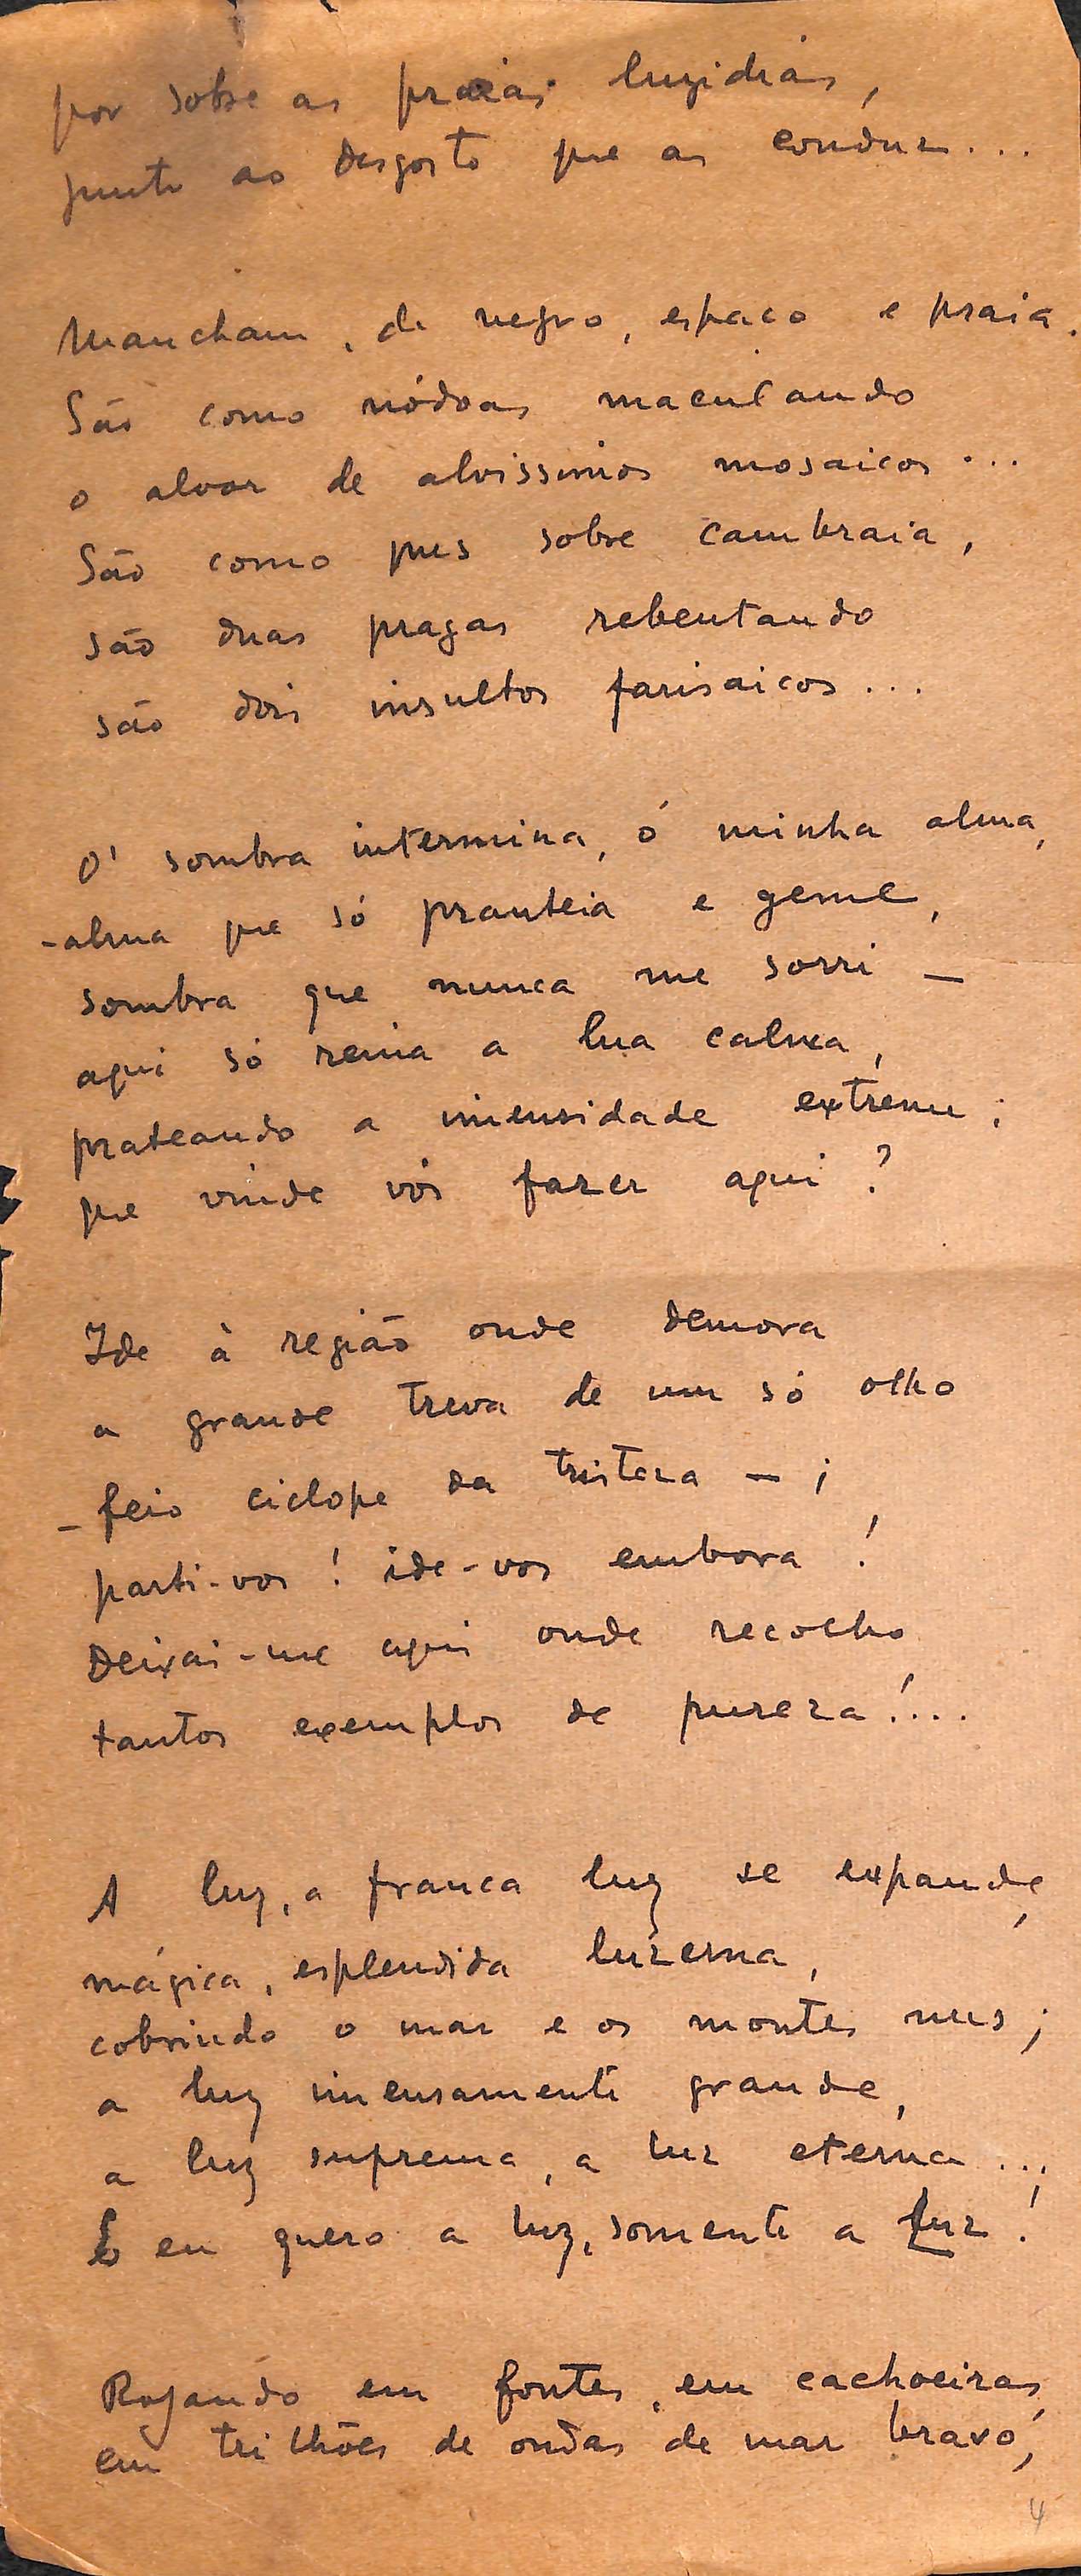 por sobre as praias luzidias,
junto ao desgosto que as conduz...
Mancham, de negro, espaço e praia.
São como nódoas maculando
o alvor de alvissimos mosaicos...
São como pus sobre cambraia,
são duas pragas rebentando
são dois insultos farisaicos...
O' sombra intermina, ó minha alma,
-alma que só pranteia e geme,
sombra que nunca me sorri —
aqui só reina a lua calma,
prateando a imensidade extreme;
que vinde vós fazer aqui?
Ide à região onde demora
a grande treva de um só olho
- feio ciclope da tristeza — ;
parti-vos! ide-vos embora!
Deixai-me aqui onde recolho
tantos exemplos de pureza!...
A luz, a franca luz se expande,
mágica, esplendida luzerna,
cobrindo o mar e os montes nus;
a luz imensamente grande,
a luz suprema, a luz eterna...
E eu quero a luz, somente a Luz!
Rojando em fontes, em cachoeiras,
em trilhões de ondas de mar bravo,
4